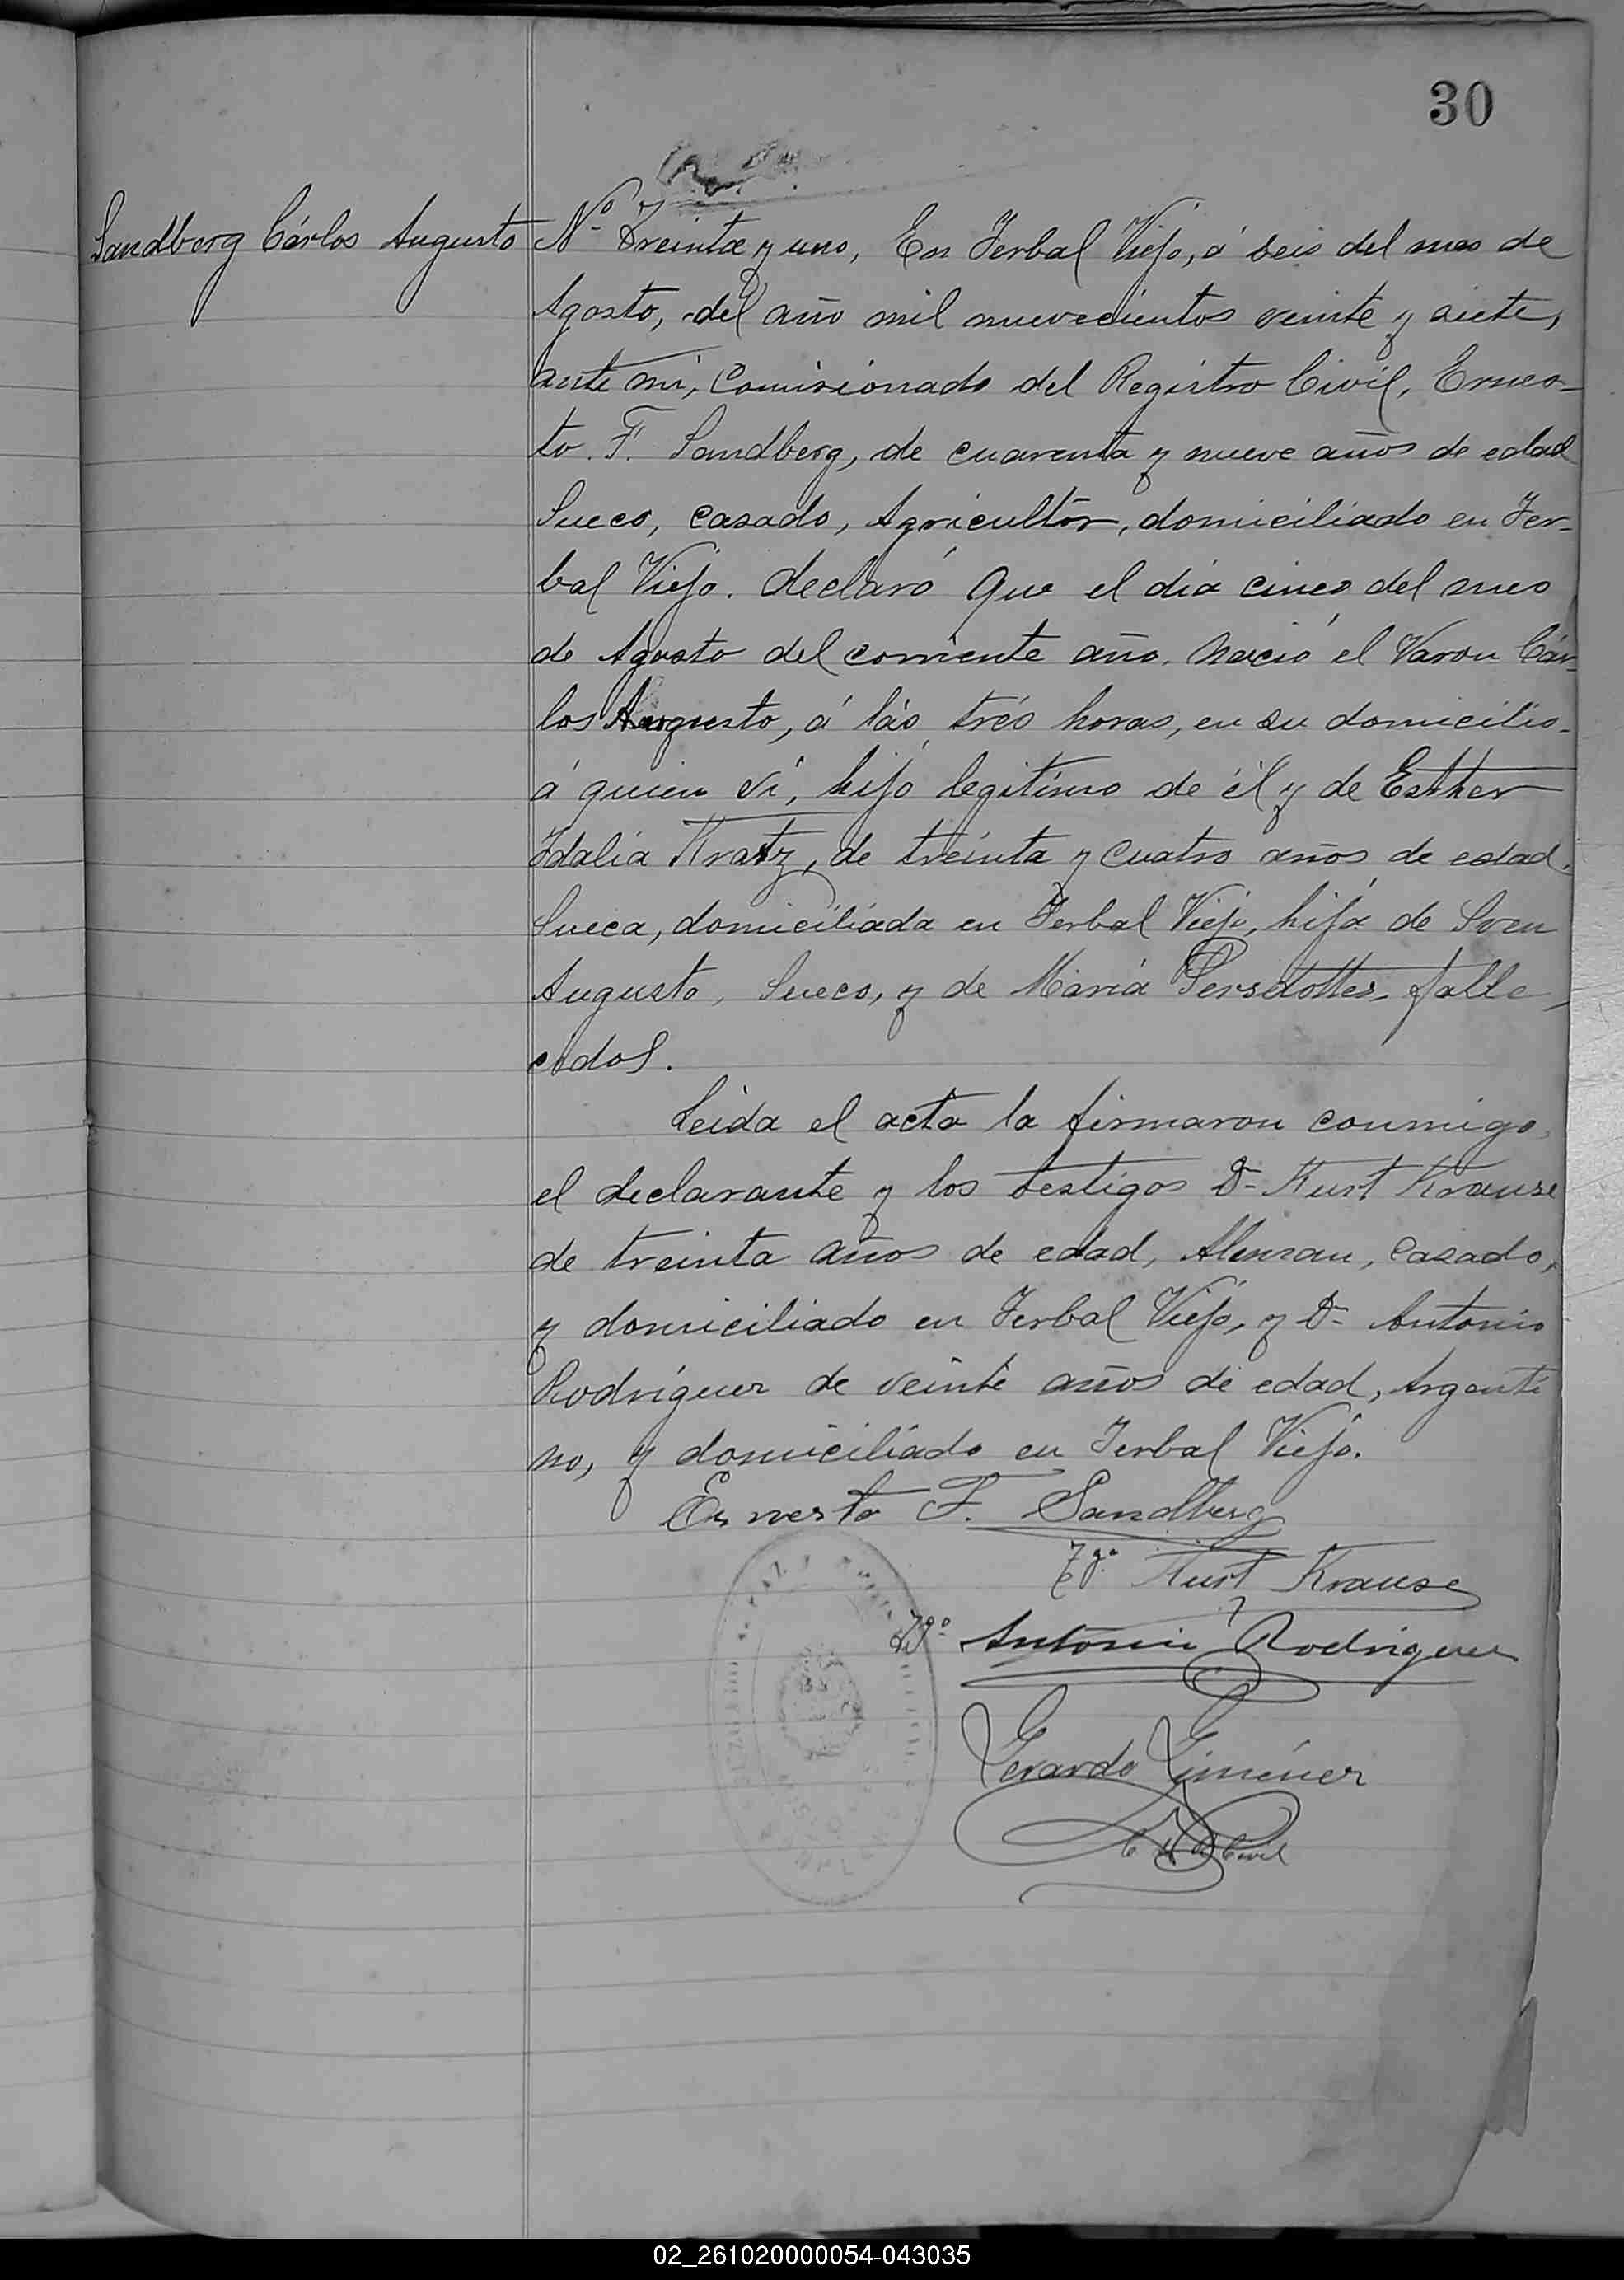 30
Sandberg Cárlos Augusto
Nº Treinta y uno, En Yerbal Viejo, á seis del mes de
Agosto, del año mil nuevecientos veinte y siete,
ante mi, Comisionado del Registro Civil, Ernes-
to. F. Sandberg, de cuarenta y nueve años de edad
Sueco, casado, Agricultor, domiciliado en Yer-
bal Viejo. declaró Que el dia cinco del mes
de Agosto del corriente año. Nació el Varon Cár-
los Augusto, á las trés horas, en su domicilio-
á quien ví, hijo legitimo de él y de Esther
Idalia Kratz, de treinta y cuatro años de edad.
Sueca, domiciliada en Yerbal Viejo, hija de Sven
Augusto, Sueco, y de Maria Persdotter- falle-
cidos.
Leida el acta la firmaron conmigo
el declarante y los testigos D- Kurt Krause
de treinta años de edad, Aleman, casado,
y domiciliado en Yerbal Viejo, y D- Antonio
Rodriguez de veinte años de edad, Argenti
no, y domiciliado en Yerbal Viejo.
Ernesto F. Sandberg
Tgº Kurt Krause
Tgº Antonio Rodriguez
Gerardo Giménez
Civil
02_261020000054-043035